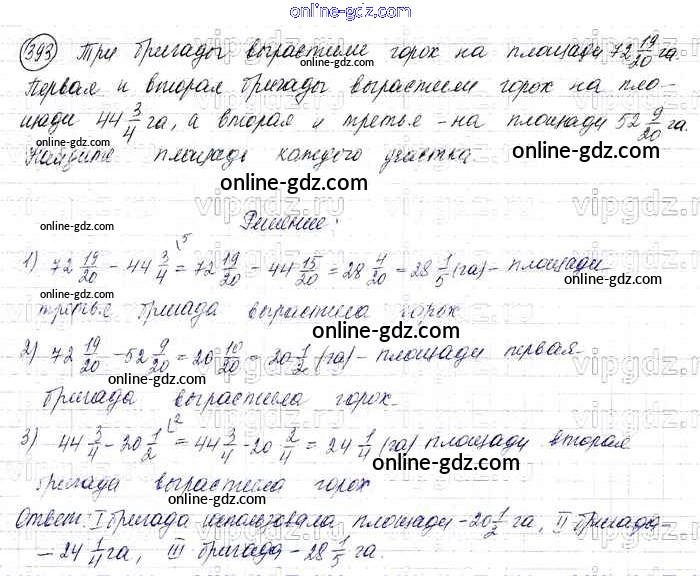 online-gdz.com
393 Три бригады вырастили горох на площади 72 19/20 га.
online-gdz.com
Первая и вторая бригады вырастили горох на пло-
щади 44 3/4 га, а вторая и третье - на площади 52 9/20 га.
online-gdz.com online-gdz.com
Найдите площадь каждого участка
online-gdz.com
vipgdz.com
online-gdz.com Решение: online-gdz.com
1) 72 19/20 - 44 3/4 \5 = 72 19/20 - 44 15/20 = 28 4/20 = 28 1/5 (га) - площади
online-gdz.com
третье бригада вырастила горох
online-gdz.com
2) 72 19/20 - 52 9/20 = 20 10/20 = 20 1/2 (га) - площади первая
online-gdz.com online-gdz.com
бригада вырастила горох
3) 44 3/4 - 20 1/2 \2 = 44 3/4 - 20 2/4 = 24 1/4 (га) площади вторая
online-gdz.com online-gdz.com
бригада вырастила горох
online-gdz.com
Ответ: I бригада использовала площади - 20 1/2 га, II бригада
online-gdz.com
- 24 1/4 га, III бригада - 28 1/5 га.
online-gdz.com